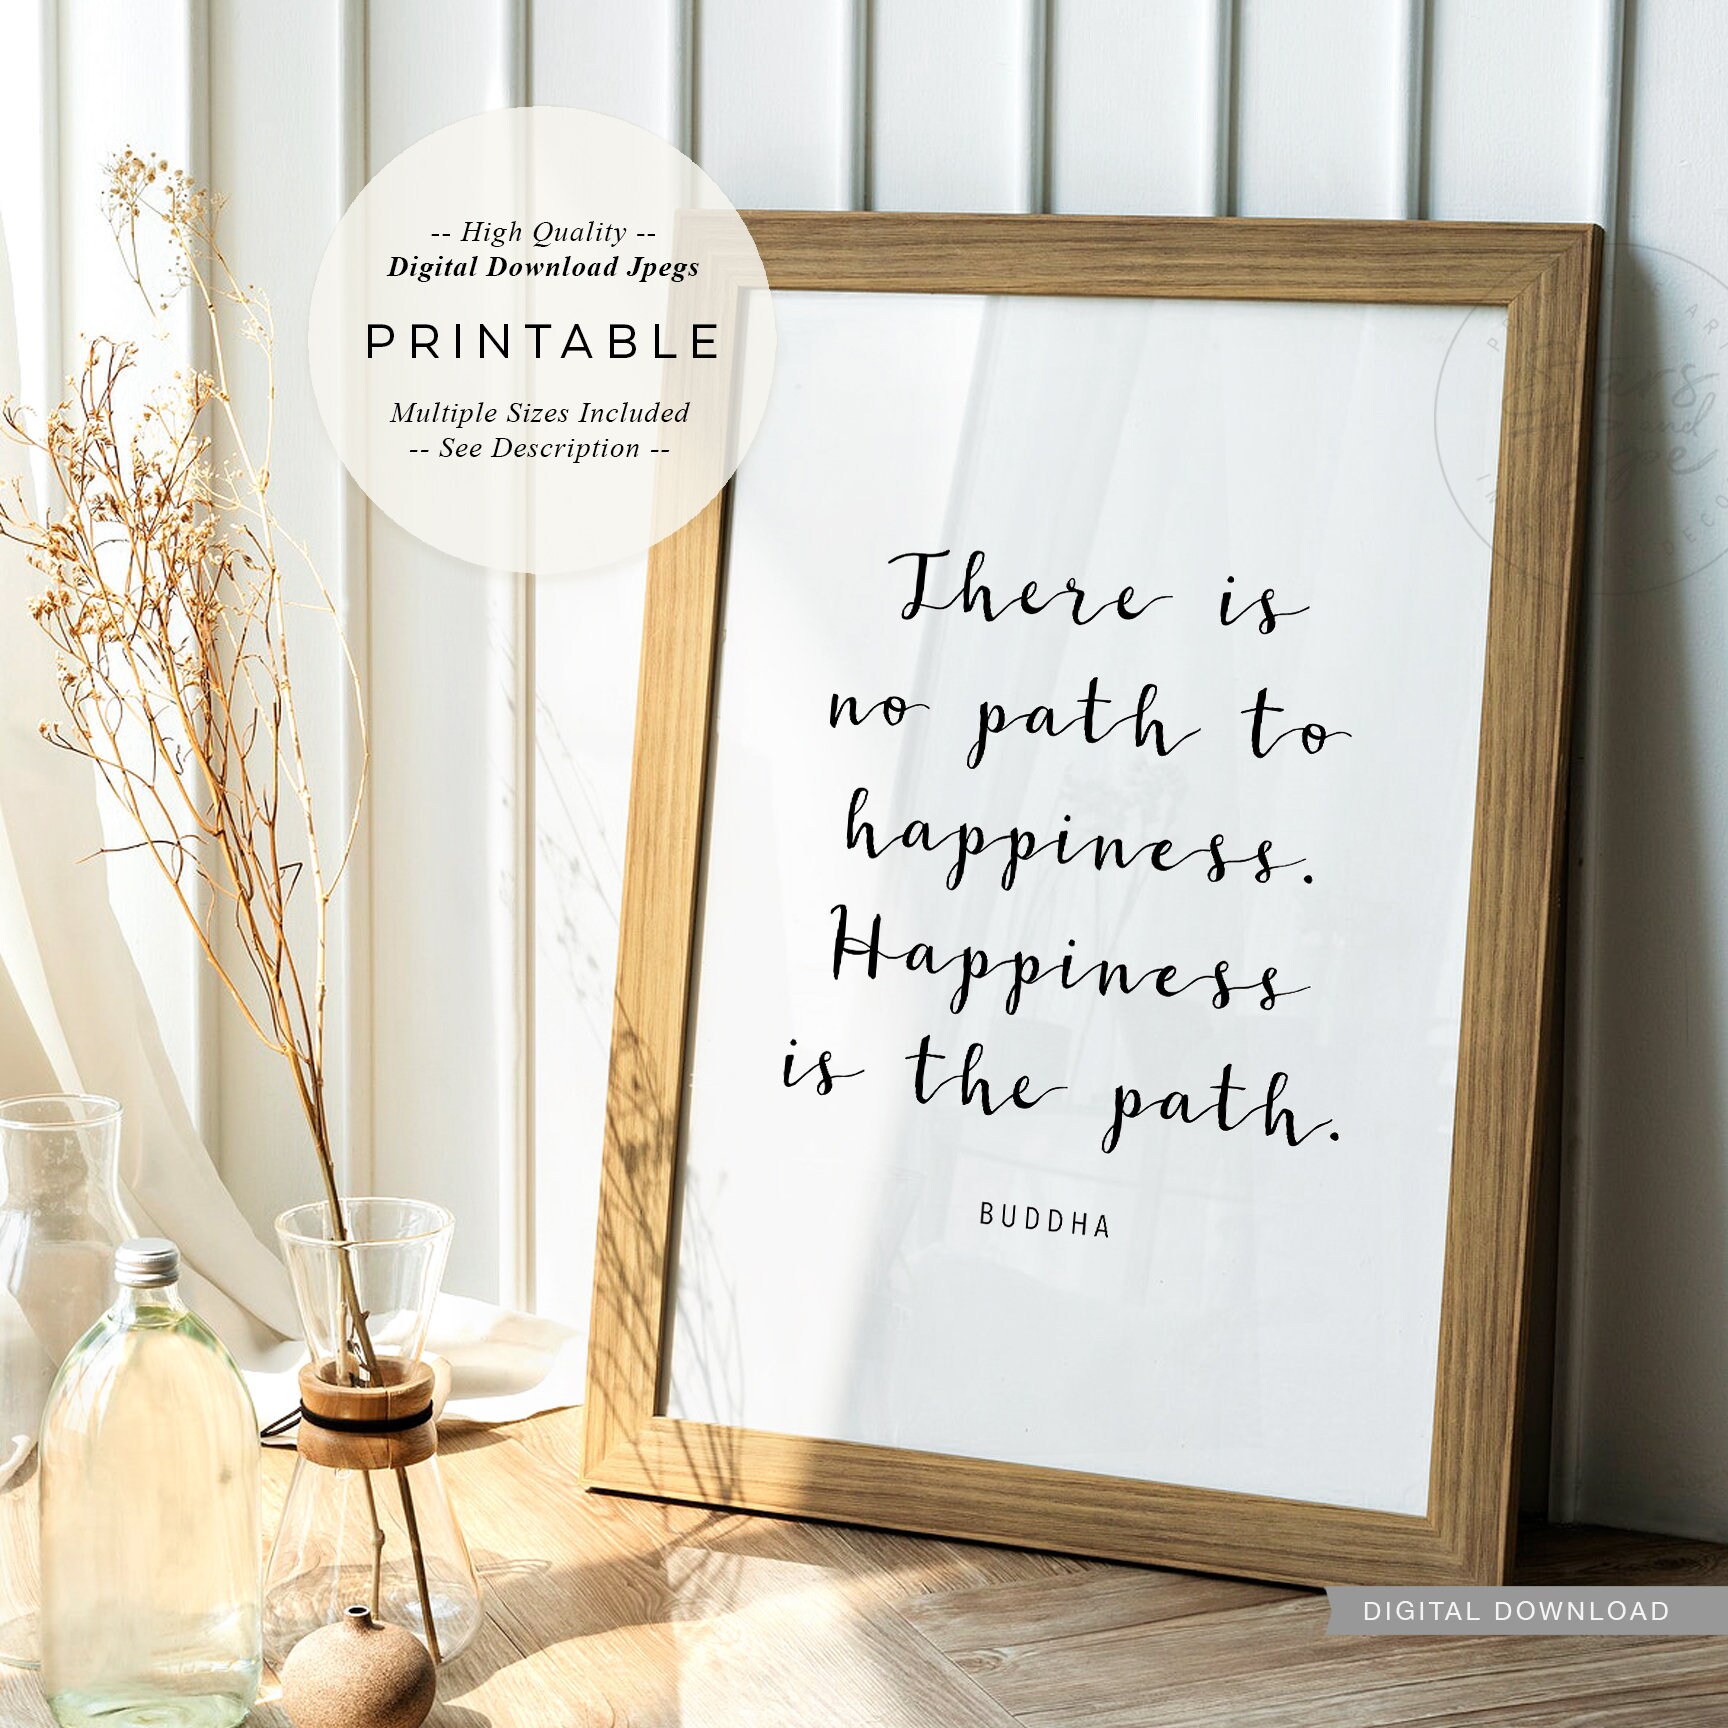 -- High Quality --
Digital Download Jpegs
PRINTABLE
Multiple Sizes Included
-- See Description --
There is
no path to
happiness.
Happiness
is the path.
BUDDHA
DIGITAL DOWNLOAD